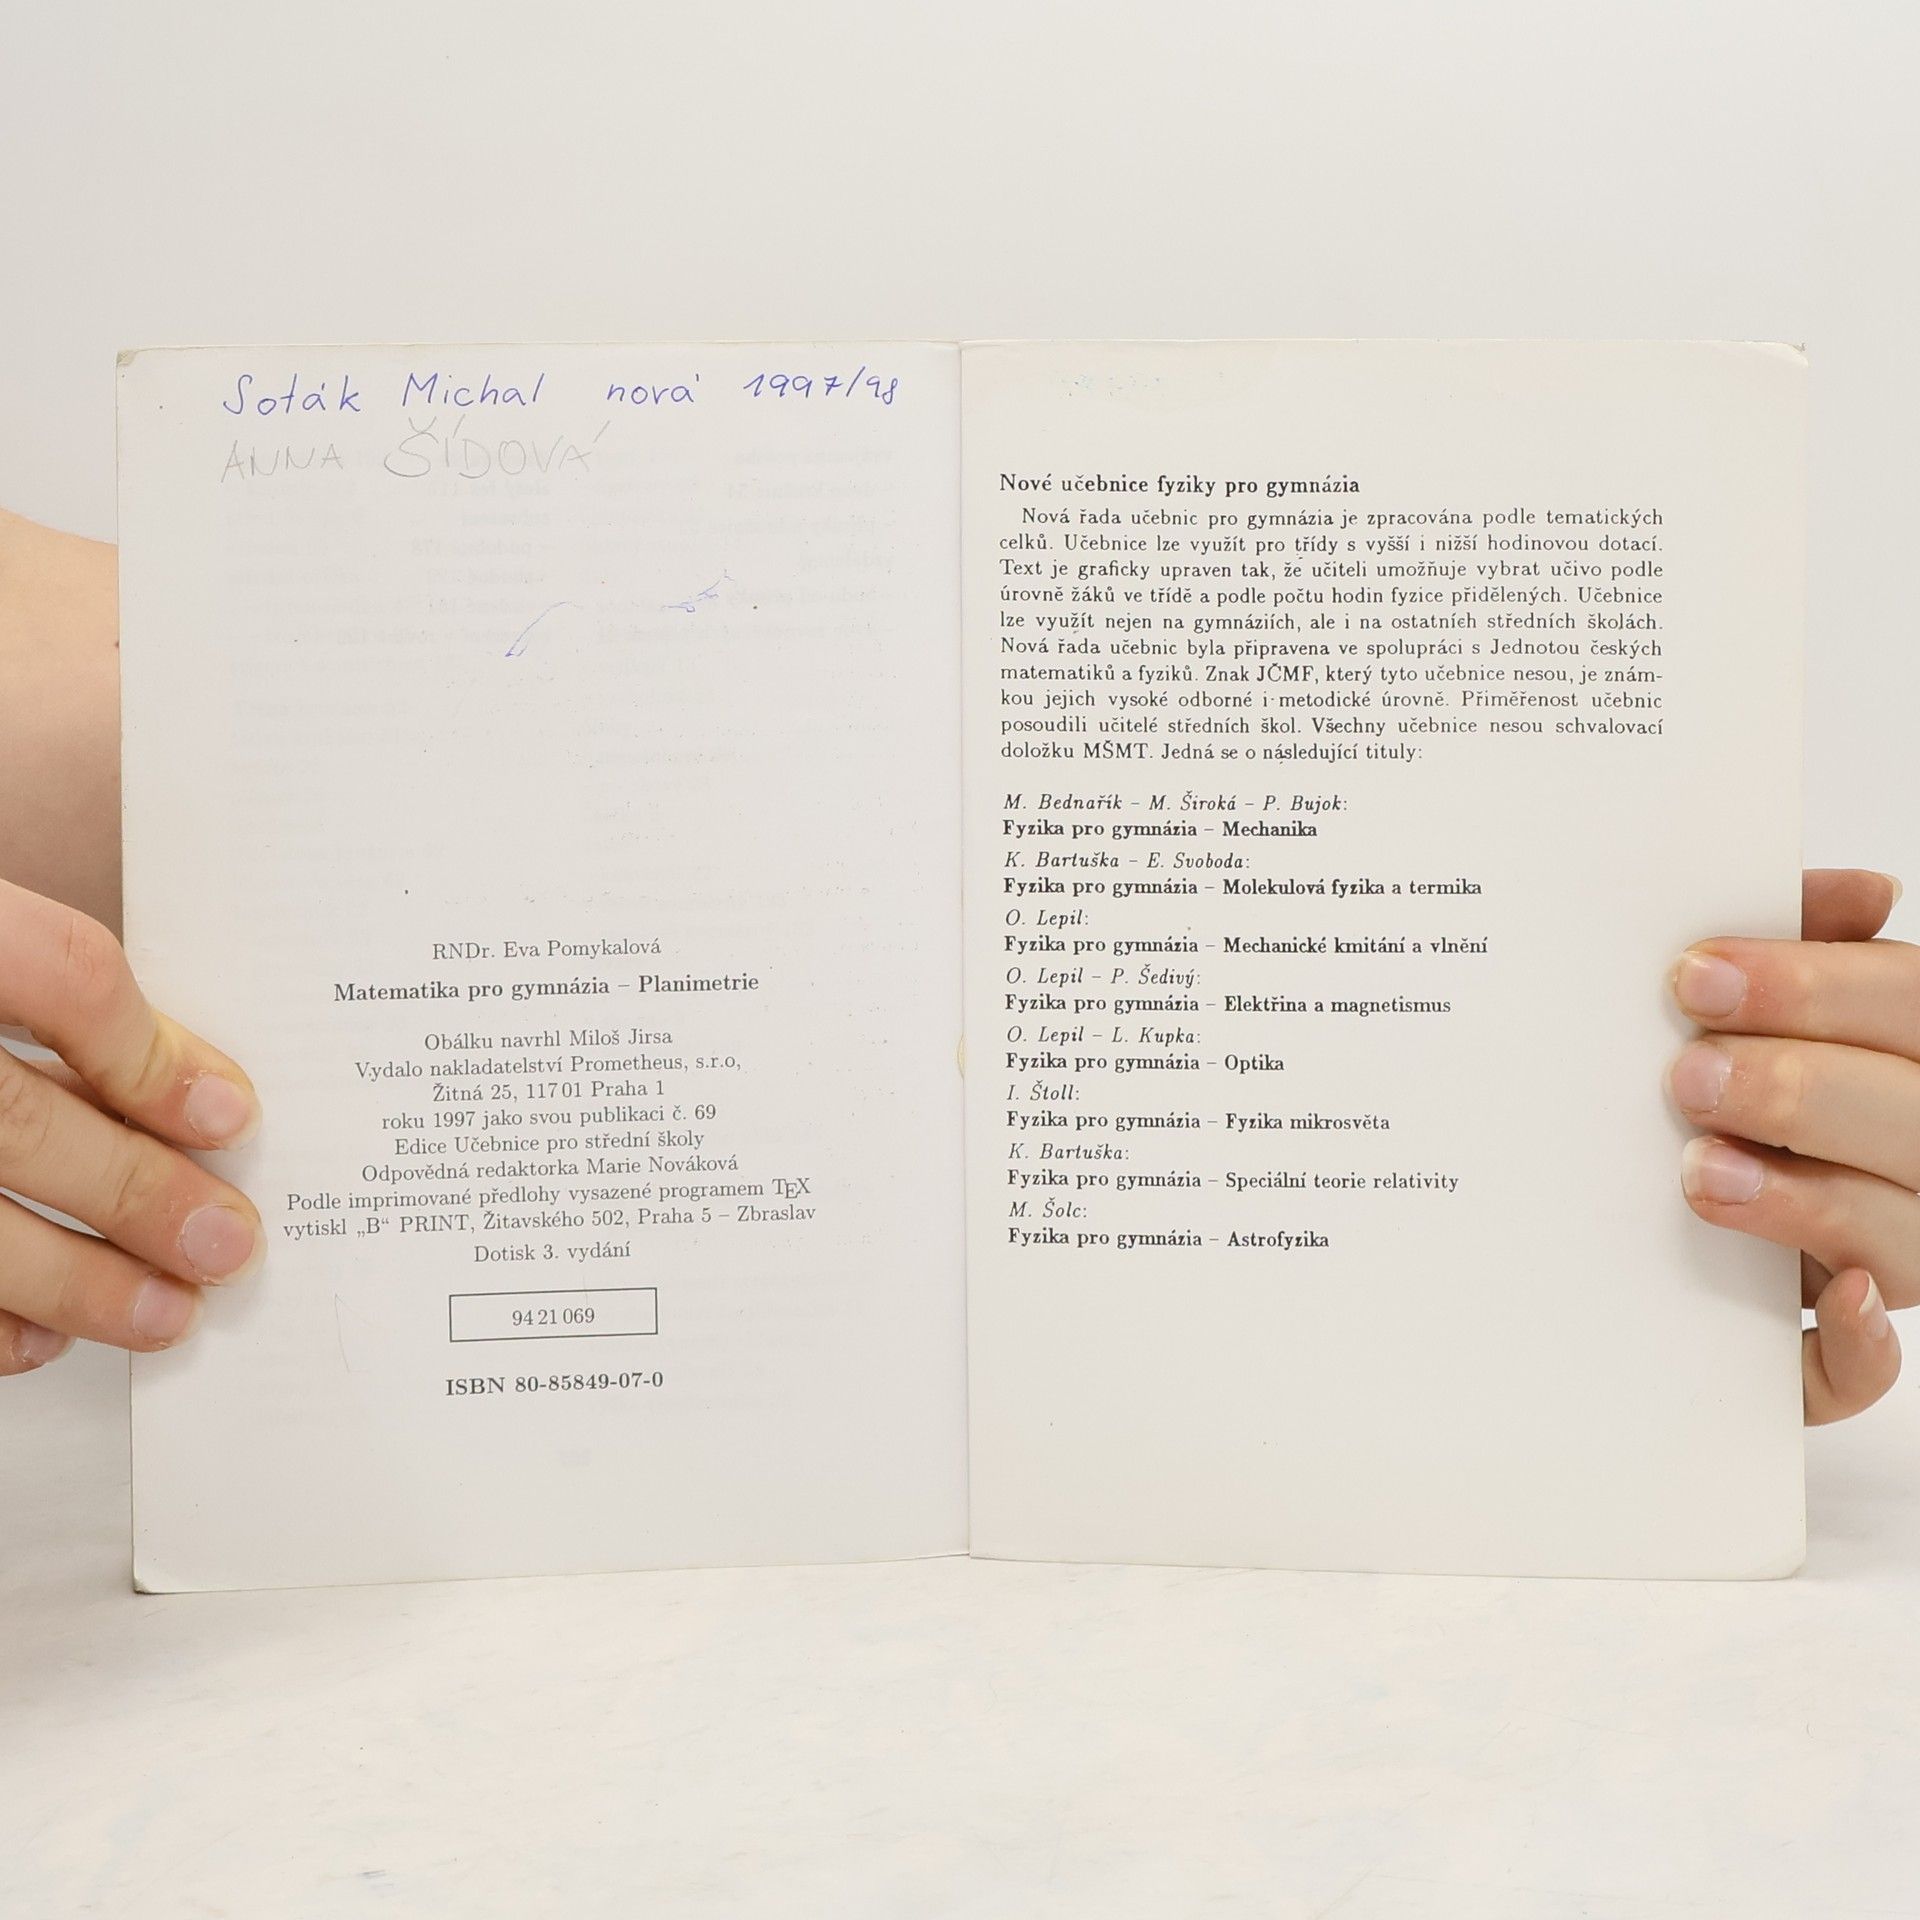 Soták Michal nová 1997/98
ANNA ŠÍDOVÁ
RNDr. Eva Pomykalová
Matematika pro gymnázia – Planimetrie
Obálku navrhl Miloš Jirsa
Vydalo nakladatelství Prometheus, s.r.o,
Žitná 25, 117 01 Praha 1
roku 1997 jako svou publikaci č. 69
Edice Učebnice pro střední školy
Odpovědná redaktorka Marie Nováková
Podle imprimované předlohy vysazené programem TEX
vytiskl „B“ PRINT, Žitavského 502, Praha 5 – Zbraslav
Dotisk 3. vydání
94 21 069
ISBN 80-85849-07-0
Nové učebnice fyziky pro gymnázia
Nová řada učebnic pro gymnázia je zpracována podle tematických
celků. Učebnice lze využít pro třídy s vyšší i nižší hodinovou dotací.
Text je graficky upraven tak, že učiteli umožňuje vybrat učivo podle
úrovně žáků ve třídě a podle počtu hodin fyzice přidělených. Učebnice
lze využít nejen na gymnáziích, ale i na ostatních středních školách.
Nová řada učebnic byla připravena ve spolupráci s Jednotou českých
matematiků a fyziků. Znak JČMF, který tyto učebnice nesou, je znám-
kou jejich vysoké odborné i metodické úrovně. Přiměřenost učebnic
posoudili učitelé středních škol. Všechny učebnice nesou schvalovací
doložku MŠMT. Jedná se o následující tituly:
M. Bednařík – M. Široká – P. Bujok:
Fyzika pro gymnázia – Mechanika
K. Bartuška – E. Svoboda:
Fyzika pro gymnázia – Molekulová fyzika a termika
O. Lepil:
Fyzika pro gymnázia – Mechanické kmitání a vlnění
O. Lepil – P. Šedivý:
Fyzika pro gymnázia – Elektřina a magnetismus
O. Lepil – L. Kupka:
Fyzika pro gymnázia – Optika
I. Štoll:
Fyzika pro gymnázia – Fyzika mikrosvěta
K. Bartuška:
Fyzika pro gymnázia – Speciální teorie relativity
M. Šolc:
Fyzika pro gymnázia – Astrofyzika